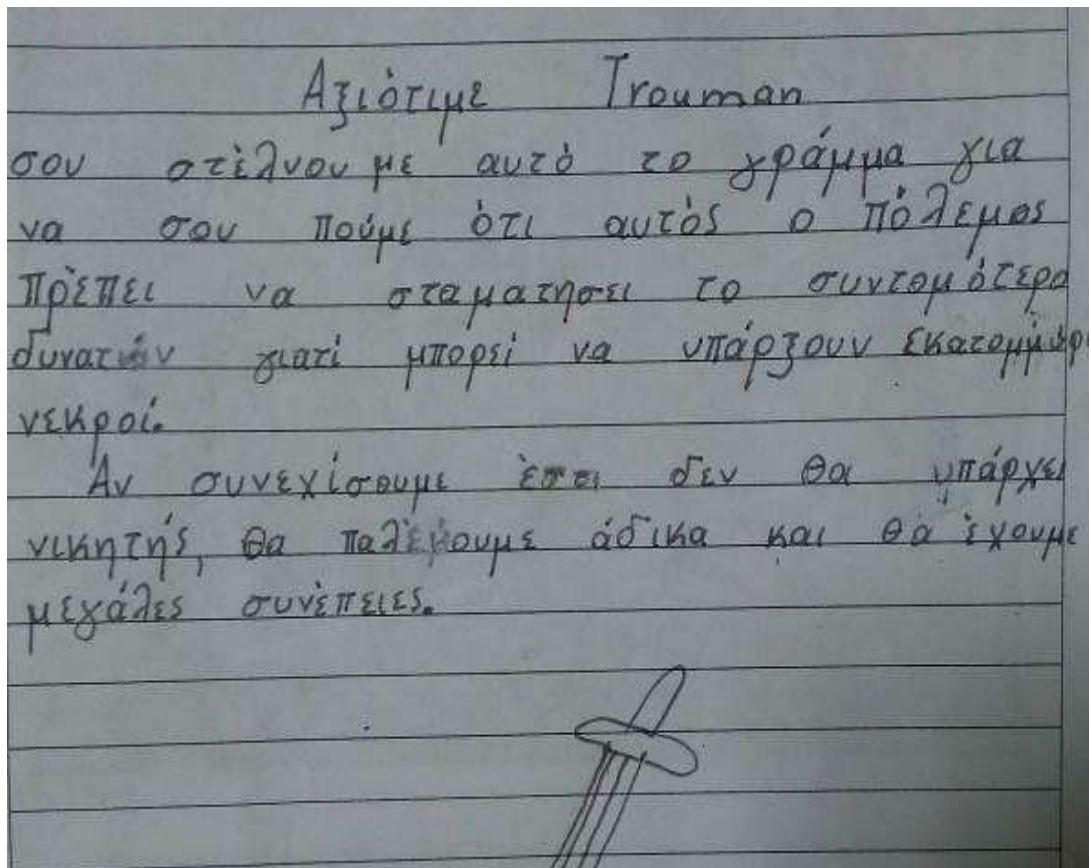 Αξιότιμε Trouman
σου στέλνουμε αυτό το γράμμα για
να σου πούμε ότι αυτός ο πόλεμος
πρέπει να σταματησει το συντομότερο
δυνατών γιατί μπορεί να υπάρξουν
νεκροί.
Αν συνεχίσουμε έτσι δεν θα υπάρχει
νικητής, θα παλέψουμε άδικα και θα έχουμε
μεγάλες συνέπειες.